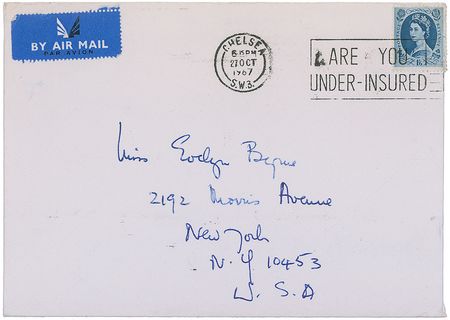 BY AIR MAIL
PAR AVION
CHELSEA
6 PM
27 OCT
1967
S.W.3.
ARE YOU
UNDER-INSURED
Miss Evelyn Byrne
2192 Morris Avenue
New York
N.Y 10453
U.S.A